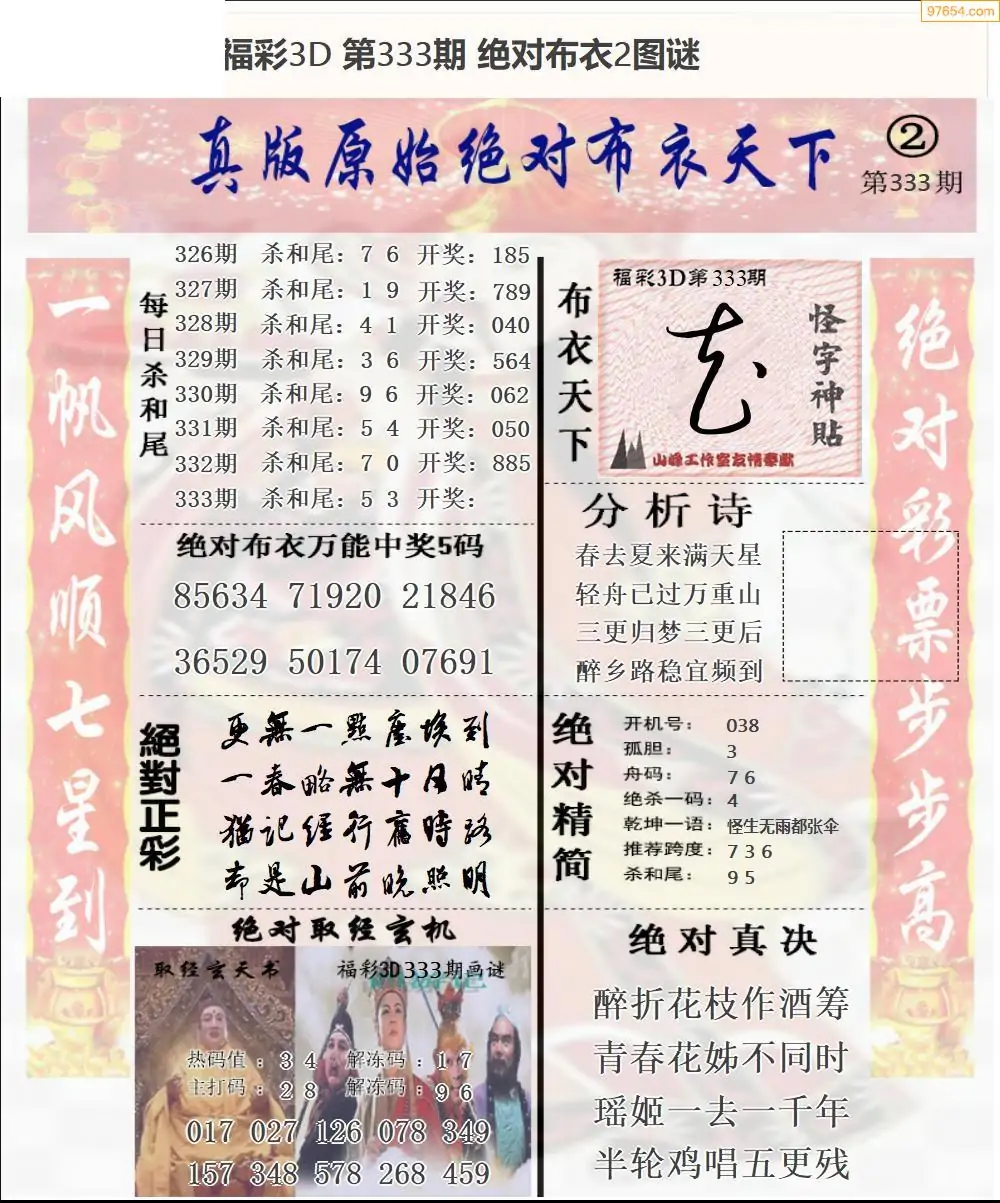 97654.com
福彩3D 第333期 绝对布衣2图谜
真版原始绝对布衣天下
②
第333期
一帆风顺七星到
每日杀和尾
326期 杀和尾：7 6 开奖：185
327期 杀和尾：1 9 开奖：789
328期 杀和尾：4 1 开奖：040
329期 杀和尾：3 6 开奖：564
330期 杀和尾：9 6 开奖：062
331期 杀和尾：5 4 开奖：050
332期 杀和尾：7 0 开奖：885
333期 杀和尾：5 3 开奖：
绝对布衣万能中奖5码
85634 71920 21846
36529 50174 07691
絕對正彩
更無一點塵埃到
一春略無十日晴
猶記經行舊時路
却是山前晚照明
绝对取经玄机
取经玄天书
福彩3D333期画谜
热码值：3 4 解冻码：1 7
主打码：2 8 解冻码：9 6
017 027 126 078 349
157 348 578 268 459
布衣天下
福彩3D第333期
怪字神貼
山峰工作室友情奉献
分析诗
春去夏来满天星
轻舟已过万重山
三更归梦三更后
醉乡路稳宜频到
绝对精简
开机号： 038
孤胆： 3
舟码： 7 6
绝杀一码：4
乾坤一语：怪生无雨都张伞
推荐跨度：7 3 6
杀和尾： 9 5
绝对真决
醉折花枝作酒筹
青春花姊不同时
瑶姬一去一千年
半轮鸡唱五更残
绝对彩票步步高